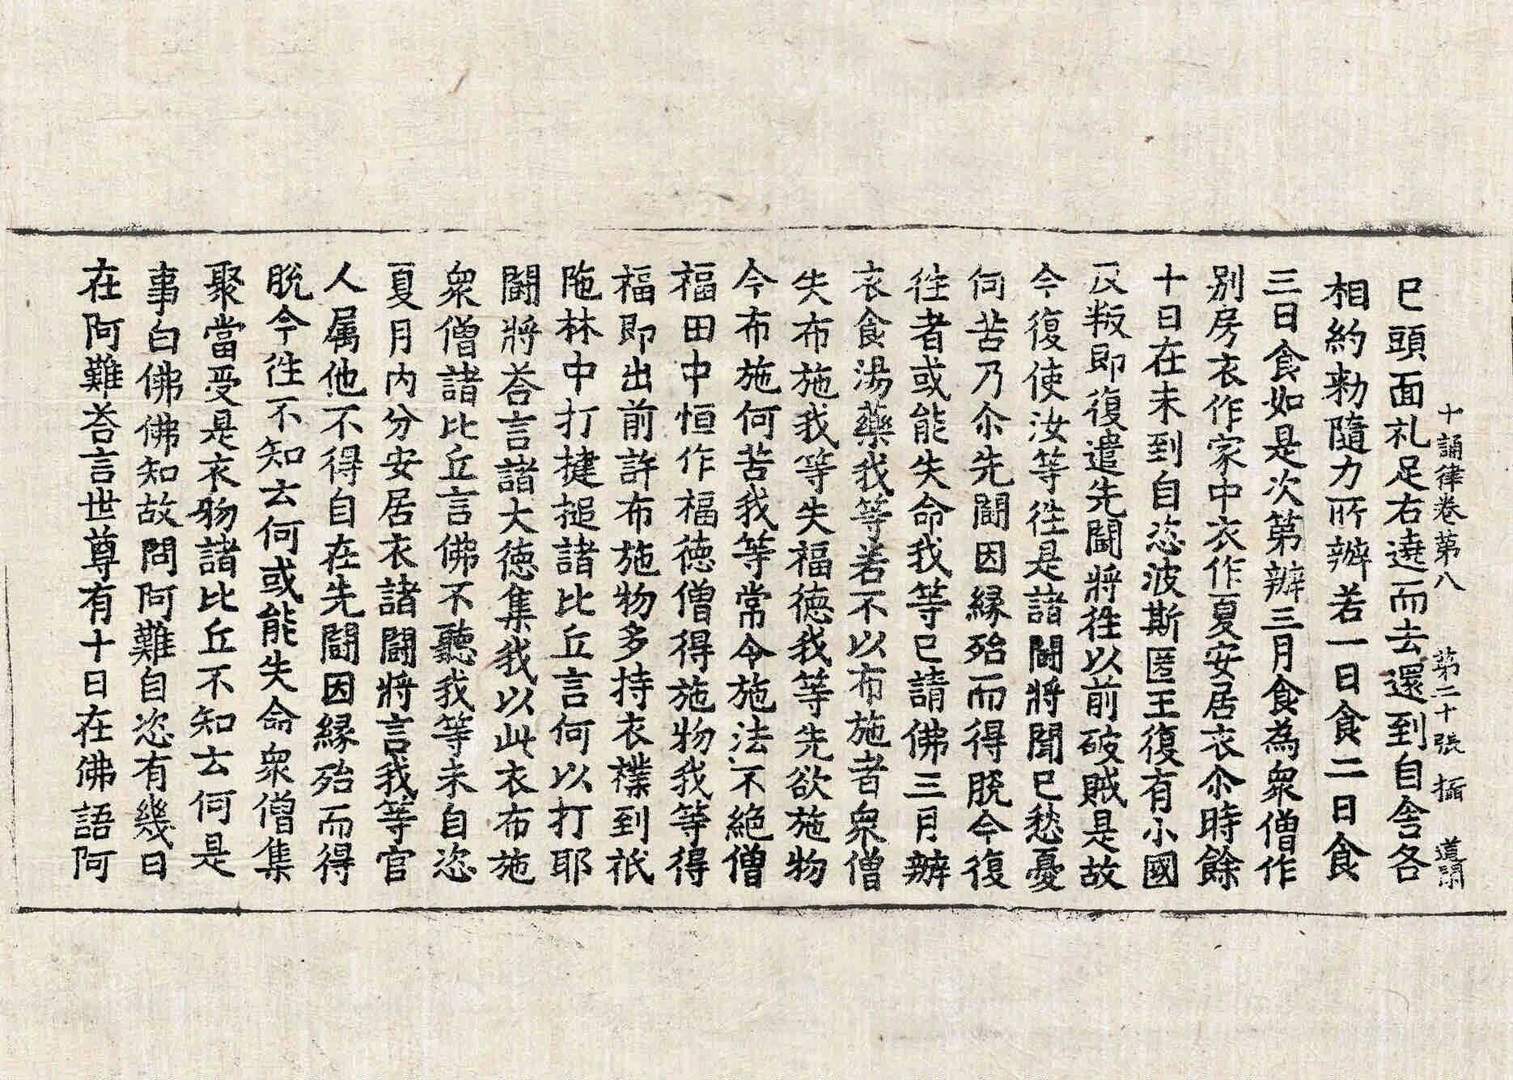 十誦律卷第八 第二十張 㨨
已頭面礼足右遶而去還到自舍各
相約勑隨力所辦若一日食二日食
三日食如是次第辦三月食為衆僧作
別房衣作家中衣作夏安居衣尒時餘
十日在未到自恣波斯匿王復有小國
反叛即復遣先鬪將往以前破賊是故
今復使汝等往是諸鬪將聞已愁憂
何苦乃尒先鬪因縁殆而得脫今復
往者或能失命我等已請佛三月辦
衣食湯藥我等若不以布施者衆僧
失布施我等失福德我等先欲施物
今布施何苦我等常令施法不絶僧
福田中恒作福德僧得施物我等得
福即出前許布施物多持衣襆到祇
陁林中打揵搥諸比丘言何以打耶
鬪將荅言諸大德集我以此衣布施
衆僧諸比丘言佛不聽我等未自恣
夏月內分安居衣諸鬪將言我等官
人属他不得自在先鬪因縁殆而得
脫今往不知云何或能失命衆僧集
聚當受是衣物諸比丘不知云何是
事白佛佛知故問阿難自恣有幾日
在阿難荅言世尊有十日在佛語阿